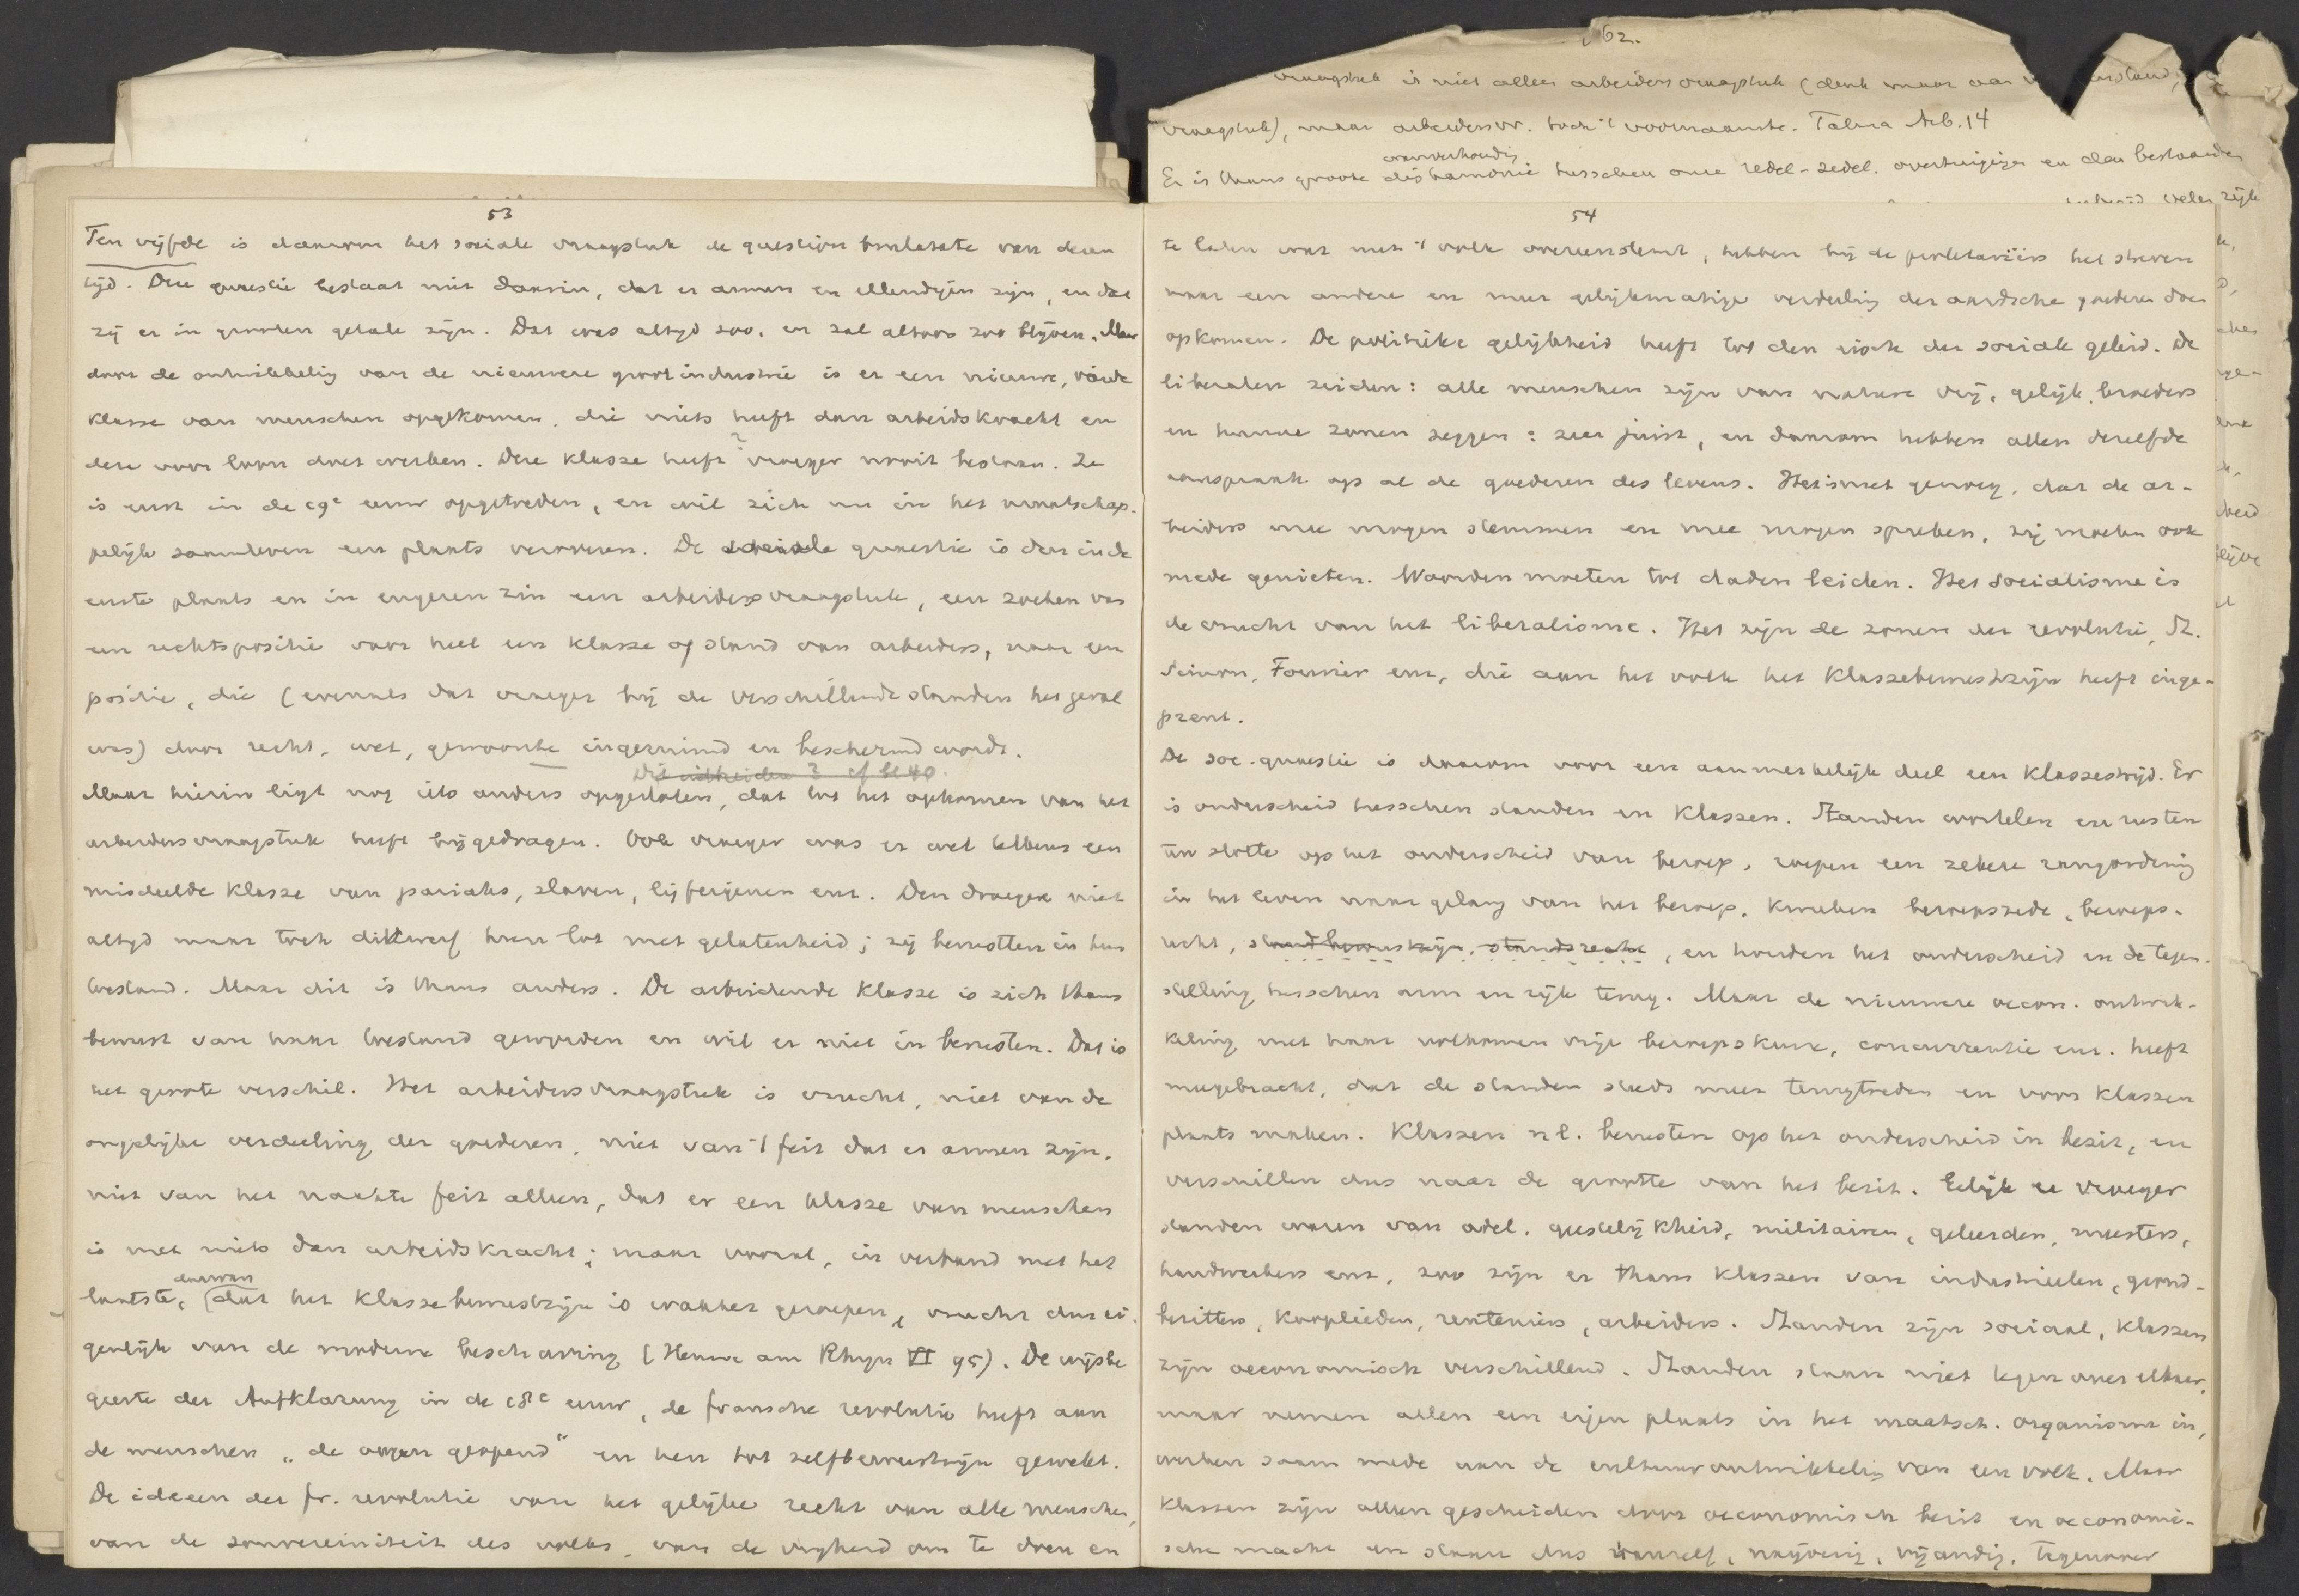 62.
vraagstuk is niet alleen arbeidersvraagstuk (denk maar aan
vraagstuk), maar arbeidersvr. toch 't voornaamste. Talma Arb. 14
wanverhoudig
Er is thans groote disharmonie tusschen onze redel-zedel. overtuigigen en den bestaanden
53
Ten vijfde is daarom het sociale vraagstuk de question brulante van dezen
tijd. Deze quaestie bestaat niet daarin, dat er armen en ellendigen zijn, en dat
zij er in grooten getale zijn. Dat was altijd zoo, en zal altoos zoo blijven. Maar
door de ontwikkelig van de nieuwere grootindustrie is er een nieuwe, vierde
klasse van menschen opgekomen, die niets heeft dan arbeidskracht en
deze voor loon doet werken. Deze klasse heeft ? vroeger nooit bestaan. Ze
is eerst in de 19e eeuw opgetreden, en wil zich nu in het maatschap-
pelijk samenleven een plaats veroveren. De sociale quaestie is dus in de
eerste plaats en in engeren zin een arbeidersvraagstuk, een zoeken van
een rechtspositie voor heel een klasse of stand van arbeiders, naar een
positie, die (evenals dat vroeger bij de verschillende standen het geval
was) door recht, wet, gewoonte ingeruimd en beschermd wordt.
Dit uitbreiden? cf bl 40.
Maar hierin ligt nog iets anders opgesloten, dat tot het opkomen van het
arbeidersvraagstuk heeft bijgedragen. Ook vroeger was er wel telkens een
misdeelde klasse van pariahs, slaven, lijfeigenen enz. Den droegen niet
altijd maar toch dikwerf hun lot met gelatenheid; zij berustten in hun
toestand. Maar dit is thans anders. De arbeidende klasse is zich thans
bewust van haar toestand geworden en wil er niet in berusten. Dat is
het groote verschil. Het arbeidersvraagstuk is vrucht, niet van de
ongelijke verdeeling der goederen, niet van 't feit dat er armen zijn,
niet van het naakte feit alleen, dat er een klasse van menschen
is met niets dan arbeidskracht; maar vooral, in verband met het
daarvan
laatste, (dat het klassebewustzijn is wakker geroepen, vrucht dus ei-
genlijk van de moderne beschaving (Henne am Rhyn VI 95). De wijsbe
geerte der Aufklarung in de 18e eeuw, de fransche revolutie heeft aan
de menschen „de oogen geopend" en hen tot zelfbewustzijn gewekt.
De ideeen der fr. revolutie van het gelijke recht van alle menschen,
van de souvereiniteit des volks, van de vrijheid om te doen en
54
te laten wat met 't volk overeenstemt, hebben bij de proletariërs het streven
naar een andere en meer gelijkmatige verdeelig der aardsche goederen doen
opkomen. De politieke gelijkheid heeft tot den eisch der sociale geleid. De
liberalen zeiden: alle menschen zijn van nature vrij, gelijk, broeders
en hunne zonen zeggen: zeer juist, en daarom hebben allen dezelfde
aanspraak op al de goederen des levens. Het is niet genoeg, dat de ar-
beiders mee mogen stemmen en mee mogen spreken, zij moeten ook
mede genieten. Woorden moeten tot daden leiden. Het socialisme is
de vrucht van het liberalisme. Het zijn de zonen der revolutie, St.
Simon, Fourier enz, die aan het volk het klassebewustzijn heeft inge-
prent.
De soc. quaestie is daarom voor een aanmerkelijk deel een klassestrijd. Er
is onderscheid tusschen standen en klassen. Standen wortelen en rusten
ten slotte op het onderscheid van beroep, roepen een zekere rangordenig
in het leven naar gelang van het beroep, kweeken beroepszede, beroeps-
recht, standbewustzijn, standsrecht, en houden het onderscheid en de tegen-
stelling tusschen arm en rijk terug. Maar de nieuwere oecon. ontwik-
keling met haar volkomen vrije beroepskeuze, concurrentie enz. heeft
meegebracht, dat de standen steeds meer terugtreden en voor klassen
plaats maken. Klassen nl. berusten op het onderscheid in bezit, en
verschillen dus naar de grootte van het bezit. Gelijk er vroeger
standen waren van adel, geestelijkheid, militairen, geleerden, meesters,
handwerkers enz, zoo zijn er thans klassen van industrieelen, grond-
bezitters, kooplieden, renteniers, arbeiders. Standen zijn sociaal, klassen
zijn oeconomisch verschillend. Standen staan niet tegenover elkaar,
maar nemen allen een eigen plaats in het maatsch. organisme in,
werken saam mede aan de cultuurontwikkelig van een volk. Maar
klassen zijn alleen gescheiden door oeconomisch bezit en oeconomi-
sche macht en staan dus vanzelf, naijverig, vijandig, tegenover